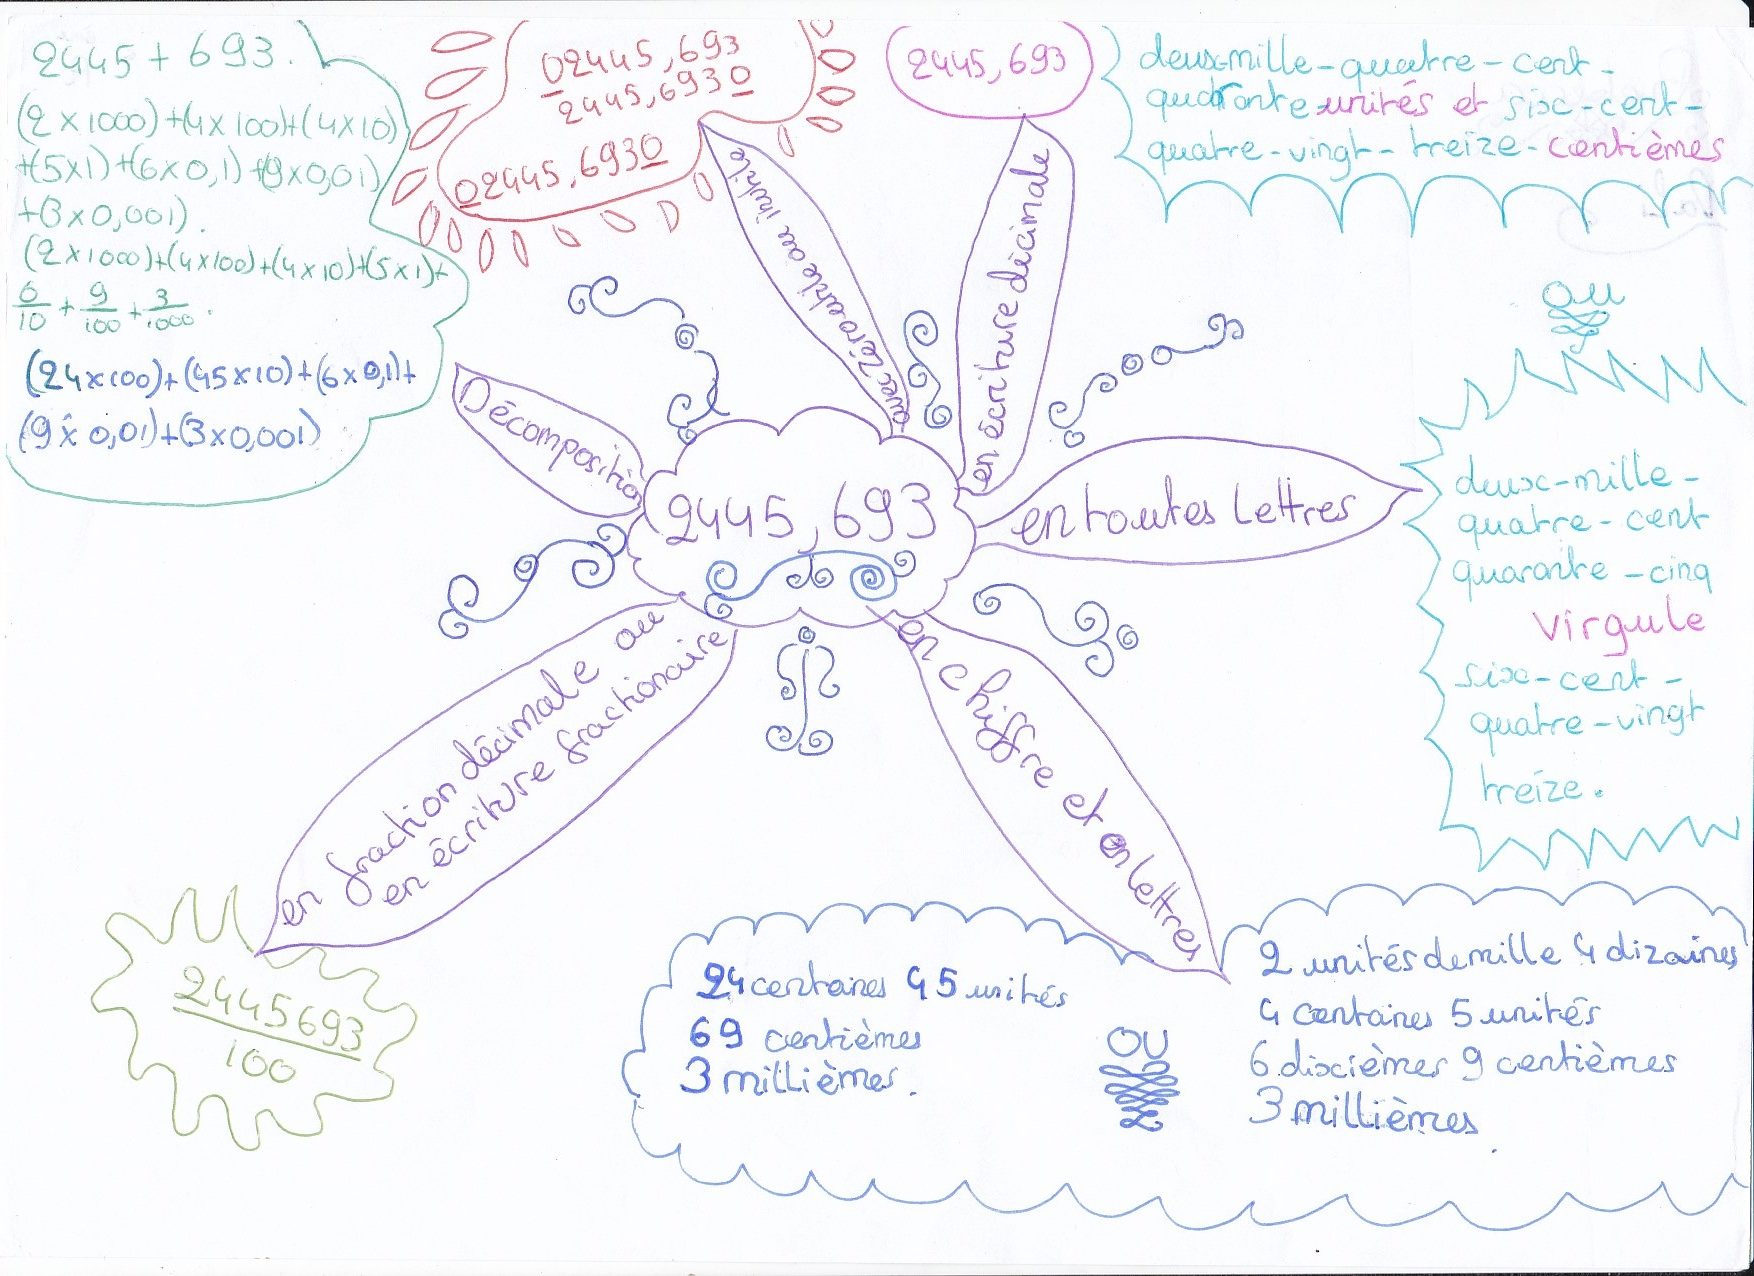 2445 + 693.
(2 x 1000) + (4 x 100) + (4 x 10)
+(5x1) +(6 x 0,1) +(9 x 0,01)
+(3 x 0,001).
(2 x 1000)+(4 x 100)+(4 x 10)+(5 x 1)+
6/10 + 9/100 + 3/1000.
(24 x 100) + (45 x 10) + (6 x 0,1) +
(9 x 0,01) + (3 x 0,001)
Décomposition
02445,693
2445,6930
02445,6930
avec zéro utile ou inutile
2445,693
en écriture décimale
deux-mille-quatre-cent-
quatronte unités et six-cent-
quatre-vingt-treize-centièmes
ou
deux-mille-
quatre-cent
quarante-cinq
virgule
six-cent-
quatre-vingt
treize.
en toutes lettres
2445,693
en chiffre et en lettres
24 centaines 45 unités
69 centièmes
3 millièmes.
OU
2 unités de mille 4 dizaines
4 centaines 5 unités
6 dixièmes 9 centièmes
3 millièmes.
en fraction décimale ou
en écriture fractionaire
2445693
100